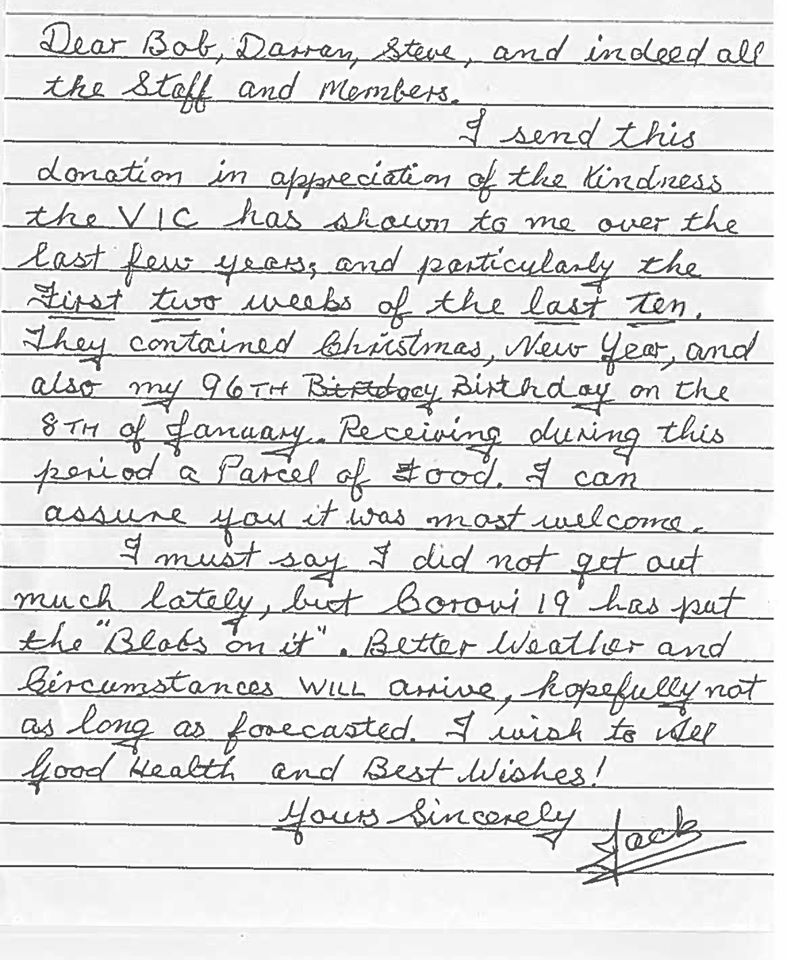 Dear Bob, Darran, Steve, and indeed all
the Staff and Members.
I send this
donation in appreciation of the Kindness
the VIC has shown to me over the
last few years; and particularly the
First two weeks of the last Ten.
They contained Christmas, New Year, and
also my 96TH Birthday on the
8TH of January. Receiving during this
period a Parcel of Food. I can
assure you it was most welcome.
I must say I did not get out
much lately, but Corovi 19 has put
the "Blobs on it". Better Weather and
Circumstances WILL arrive, hopefully not
as long as forecasted. I wish to All
Good Health and Best Wishes!
Yours Sincerely Jack